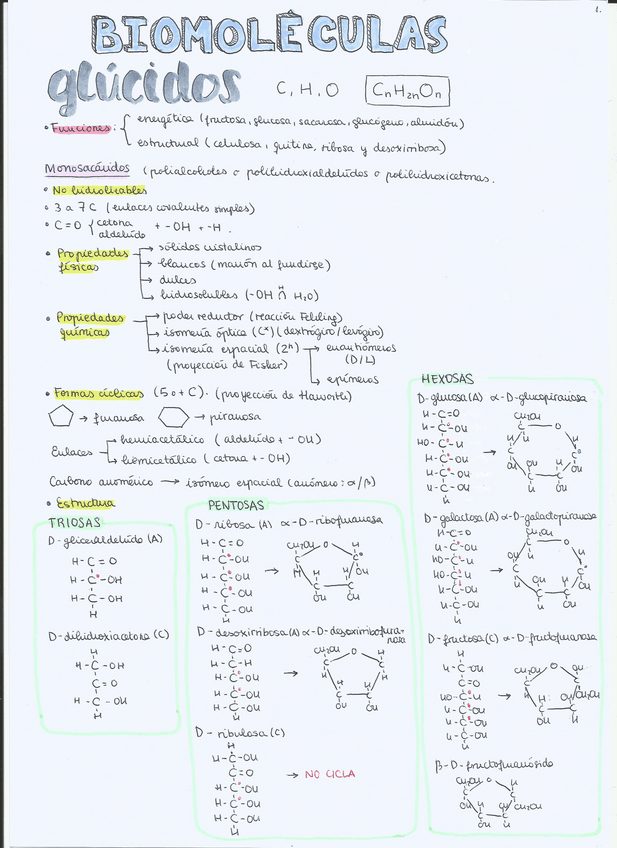 1.
BIOMOLÉCULAS
glúcidos C, H, O CnH2nOn
• Funciones: energética (fructosa, glucosa, sacarosa, glucógeno, almidón)
estructural (celulosa, quitina, ribosa y desoxirribosa)
Monosacáridos (polialcoholes o polihidroxialdeídos o polihidroxicetonas.
• No hidrolizables
• 3 a 7C (enlaces covalentes simples)
• C=O cetona aldeído + -OH + -H.
• Propiedades físicas
→ sólidos cristalinos
→ blancos (marrón al fundirse)
→ dulces
→ hidrosolubles (-OH H2O)
• Propiedades químicas
→ poder reductor (reacción Fehling)
→ isomería óptica (C*) (dextrógiro/levógiro)
→ isomería espacial (2ⁿ) → enantiómeros
(proyección de Fisher) (D/L)
→ epímeros
• Formas cíclicas (5 o + C). (proyección de Haworth)
→ furanosa → piranosa
Enlaces
→ hemiacetálico (aldeído + -OH)
→ hemicetálico (cetona + -OH)
Carbono anomérico → isómero espacial (anómero: α/β)
• Estructura
TRIOSAS
D-gliceraldeído (A)
H-C=O
H-C*-OH
H-C-OH
H
D-dihidroxiacetona (C)
H
H-C-OH
C=O
H-C-OH
H
PENTOSAS
D-ribosa (A) α-D-ribofuranosa
H-C=O
H-C-OH
H-C-OH
H-C-OH
H-C-OH
H
D-desoxirribosa (A) α-D-desoxirribofuranosa
H-C=O
H-C-H
H-C-OH
H-C-OH
H-C-OH
H
D-ribulosa (C)
H
H-C-OH
C=O
H-C-OH
H-C-OH
H-C-OH
H
→ NO CICLA
HEXOSAS
D-glucosa (A) α-D-glucopiranosa
H-C=O
H-C-OH
HO-C-H
H-C-OH
H-C-OH
H-C-OH
H
D-galactosa (A) α-D-galactopiranosa
H-C=O
H-C-OH
HO-C-H
HO-C-H
H-C-OH
H-C-OH
H
D-fructosa (C) α-D-fructofuranosa
H
H-C-OH
C=O
HO-C-H
H-C-OH
H-C-OH
H-C-OH
H
β-D-fructofuranósido